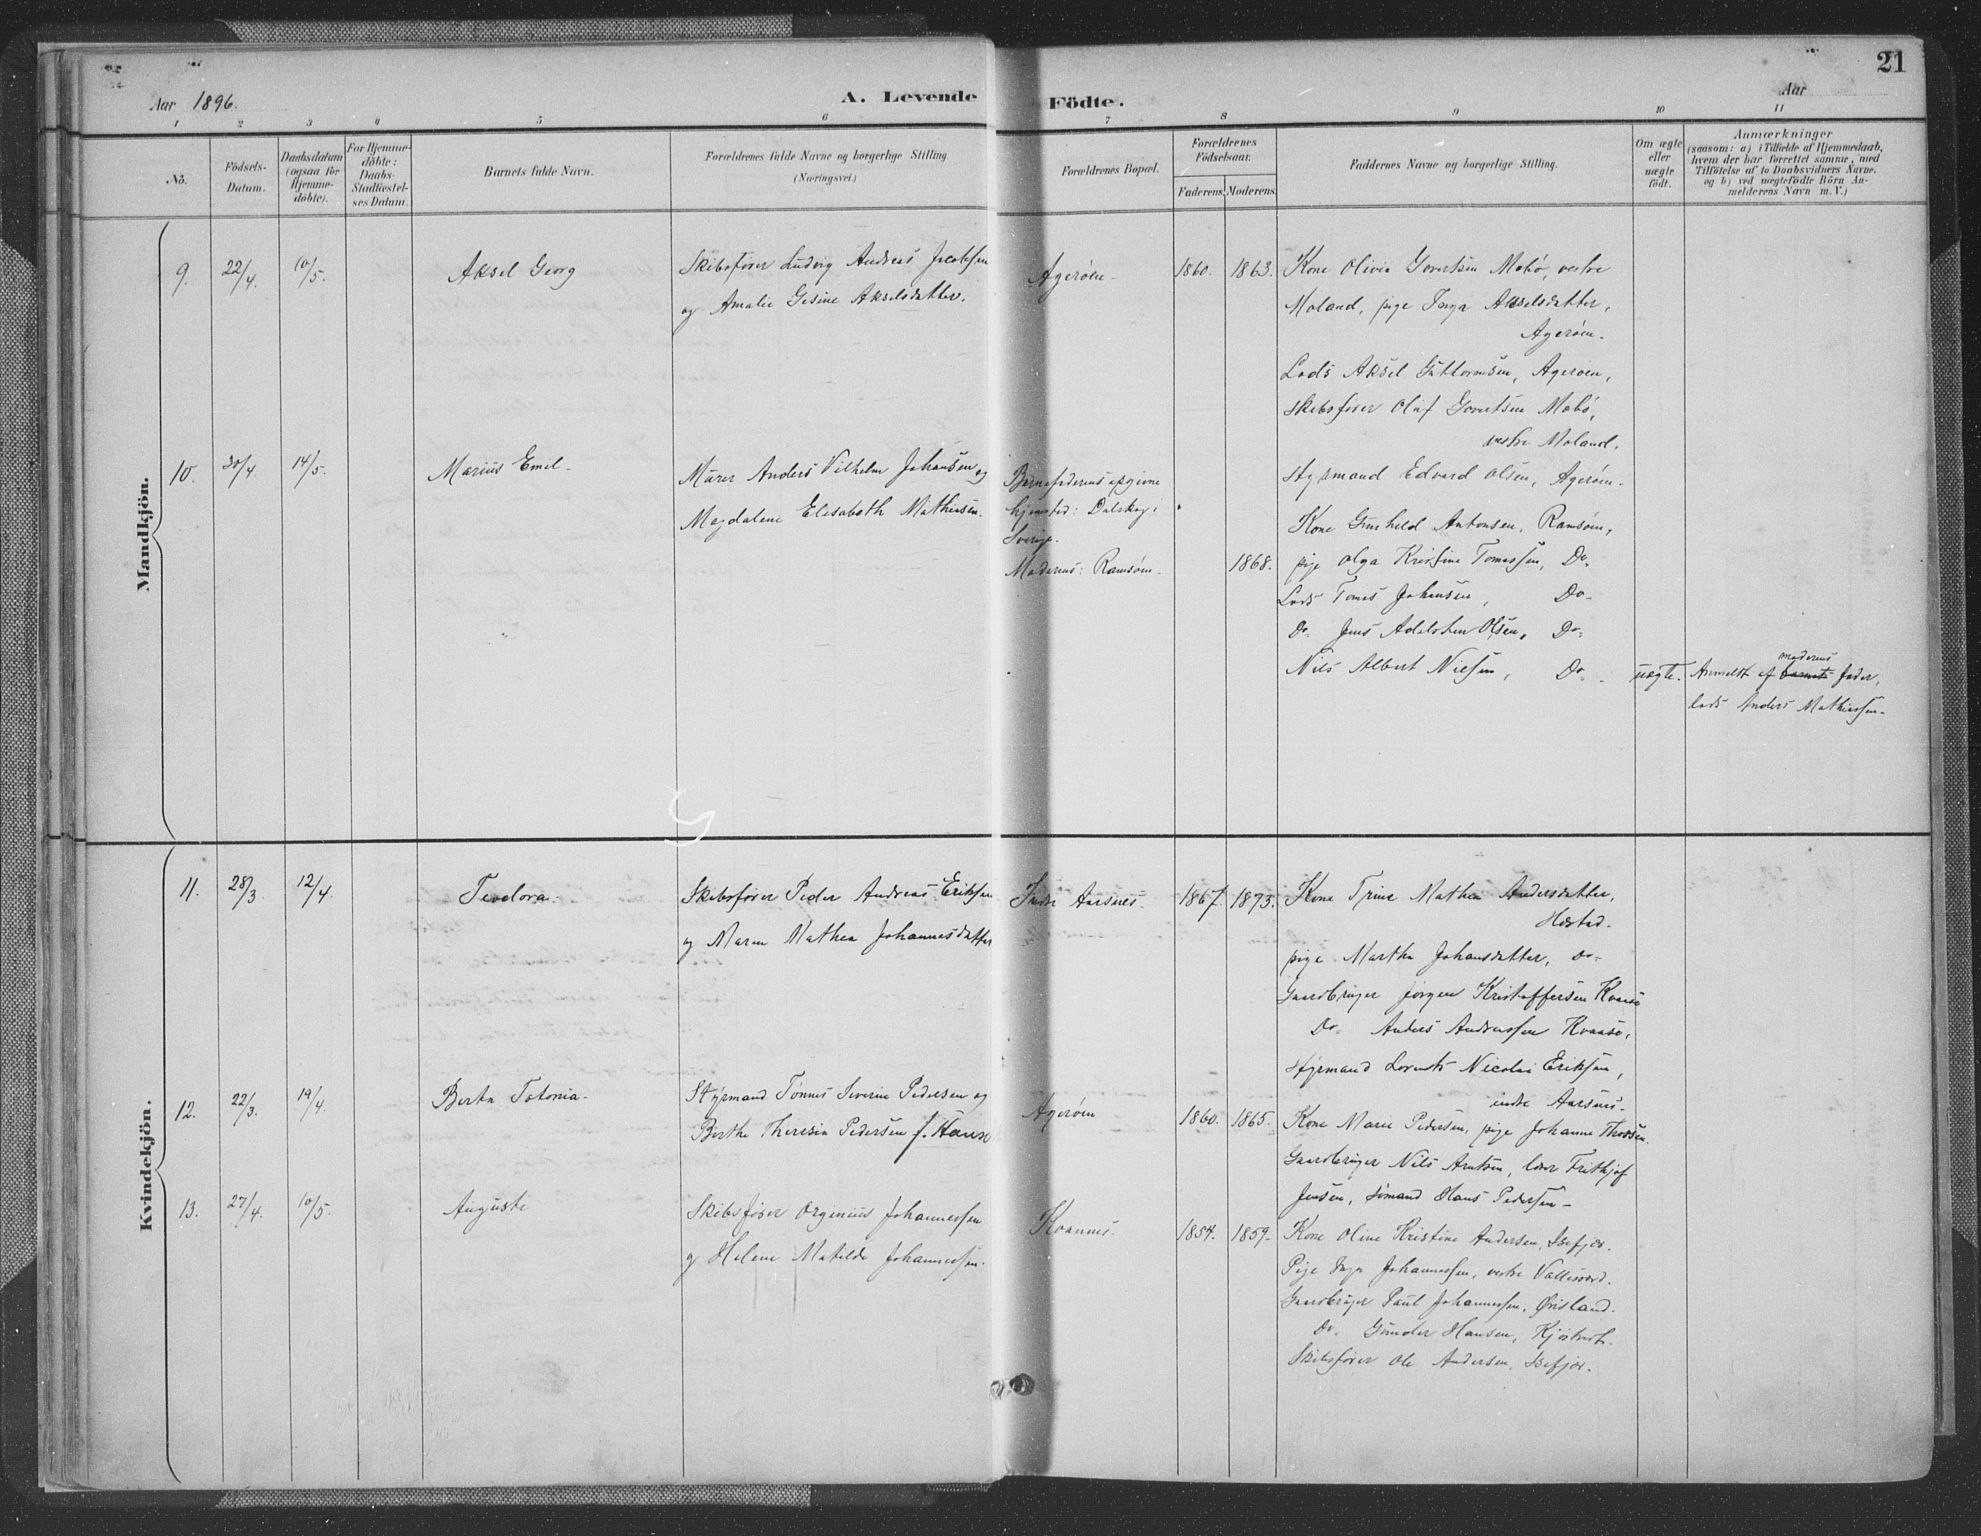 21
Aar 1896. A. Levende Födte. Aar
1 2 3 4 5 6 7 8 9 10 11
No.
Födsels-
Datum.
Daabsdatum
(ogsaa for
Hjemme-
döbte).
For Hjemme-
döbte:
Daabs-
Stadfæstel-
ses Datum.
Barnets fulde Navn.
Forældrenes fulde Navne og borgerlige Stilling
(Næringsvei.)
Forældrenes Bopæl.
Forældrenes
Födselsaar.
Faderens. Moderens.
Faddernes Navne og borgerlige Stilling.
Om ægte
eller
uægte
födt.
Anmærkninger
(saasom: a) i Tilfælde af Hjemmedaab,
hvem der har forrettet samme, med
Tilföielse af to Daabsvidners Navne.
og b) ved uægtefödte Börn An-
melderens Navn m. V.)
Mandkjön.
9. 22/4. 10/5. Aksel Georg
Skibsfører Ludvig Andreas Jacobsen
og Amalie Gesine Akselsdatter.
Agerøen.
1860. 1863.
Kone Olivia Govertsen Mebø, vestre
Moland, pige Inga Akselsdatter,
Agerøen.
Lods Aksel Guttormsen, Agerøen,
Skibsfører Oluf Govertsen Mebø,
vestre Moland.
Styrmand Edvard Olsen, Agerøen.
10. 30/4. 14/5. Marius Emil.
Murer Anders Vilhelm Johansen og
Magdalene Elisabeth Mathiesen.
Barnefaderens opgivne
hjemsted: Dalskog i
Sverige.
Moderens: Ramsøen.
1868.
Kone Gunhild Antonsen, Ramsøen,
pige Olga Kristine Tomassen, Do.
Lods Tomas Johansen, Do.
Do. Jens Adelsten Olsen, Do.
Nils Albert Nielsen, Do.
uægte.
Anmeldt af barnets moderens fader,
lods Anders Mathiassen.
Kvindekjön.
11. 28/3 12/4. Teodora.
Skibsfører Peder Andreas Eriksen
og Maren Mathea Johannesdatter
Indre Aarsnes.
1867. 1873.
Kone Trine Mathea Andersdatter,
Hæstad.
pige Martha Johansdatter, Do.
Gaardbruger Jørgen Kristoffersen Kvaase
Do. Anders Andreassen Kvaase,
Styrmand Lorents Nicolai Eriksen,
indre Aarsnes.
12. 22/3. 19/4. Berta Tatonia.
Styrmand Tønnes Severin Pedersen og
Birthe Theresia Pedersen f. Hans
Agerøen
1860. 1865.
Kone Marie Pedersen, pige Johanne Thorsen.
Gaardbruger Nils Arntsen, lærer Frithjof
Jensen, Sømand Hans Pedersen.
13. 27/4. 10/5. Auguste
Skibsfører Orginius Johannessen
og Helene Matilde Johannessen.
Kvannes.
1854. 1859.
Kone Oline Kristine Andersen, Isefjær.
Pige Inga Johannessen, vestre Vallesværd.
Gaardbruger Paul Johannessen, Øvisland.
Do. Gunder Hansen, Kjøstvedt.
Skibsfører Ole Andersen, Isefjær.